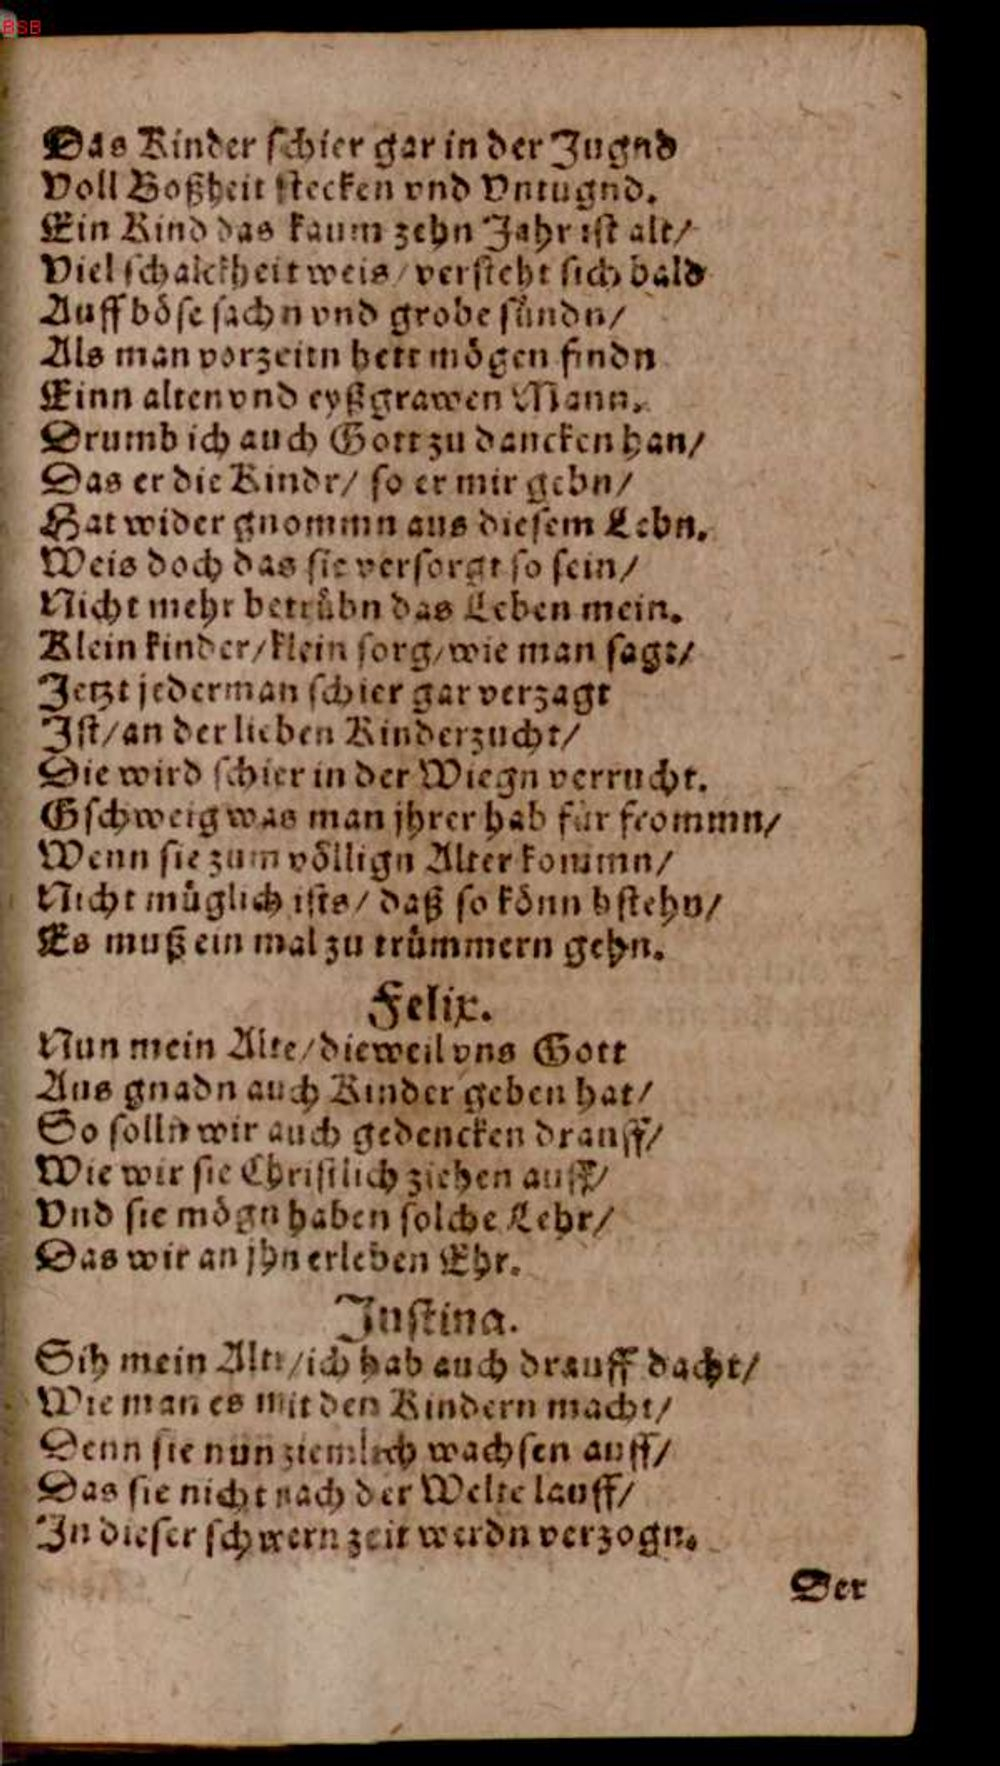 BSB
Das Kinder schier gar in der Jugnd
Voll Boßheit stecken vnd Vntugnd.
Ein Kind das kaum zehn Jahr ist alt/
Viel schalckheit weis/ versteht sich bald
Auff böse sachn vnd grobe sündn/
Als man vorzeitn hett mögen findn
Einn alten vnd eyßgrawen Mann.
Drumb ich auch Gott zu dancken han/
Das er die Kindr/ so er mir gebn/
Hat wider gnommn aus diesem Lebn.
Weis doch das sie versorgt so sein/
Nicht mehr betrübn das Leben mein.
Klein kinder/ klein sorg/ wie man sagt/
Jetzt jederman schier gar verzagt
Ist/ an der lieben Kinderzucht/
Die wird schier in der Wiegn verrucht.
Gschweig was man jhrer hab für frommn/
Wenn sie zum völlign Alter kommn/
Nicht müglich ists/ daß so könn bstehn/
Es muß ein mal zu trümmern gehn.
Felix.
Nun mein Alte/ dieweil vns Gott
Aus gnadn auch Kinder geben hat/
So solln wir auch gedencken drauff/
Wie wir sie Christlich ziehen auff/
Vnd sie mögn haben solche Lehr/
Das wir an jhn erleben Ehr.
Justina.
Sih mein Altr/ ich hab auch drauff dacht/
Wie man es mit den Kindern macht/
Denn sie nun ziemlich wachsen auff/
Das sie nicht nach der Welte lauff/
In dieser schwern zeit werdn verzogn.
Der